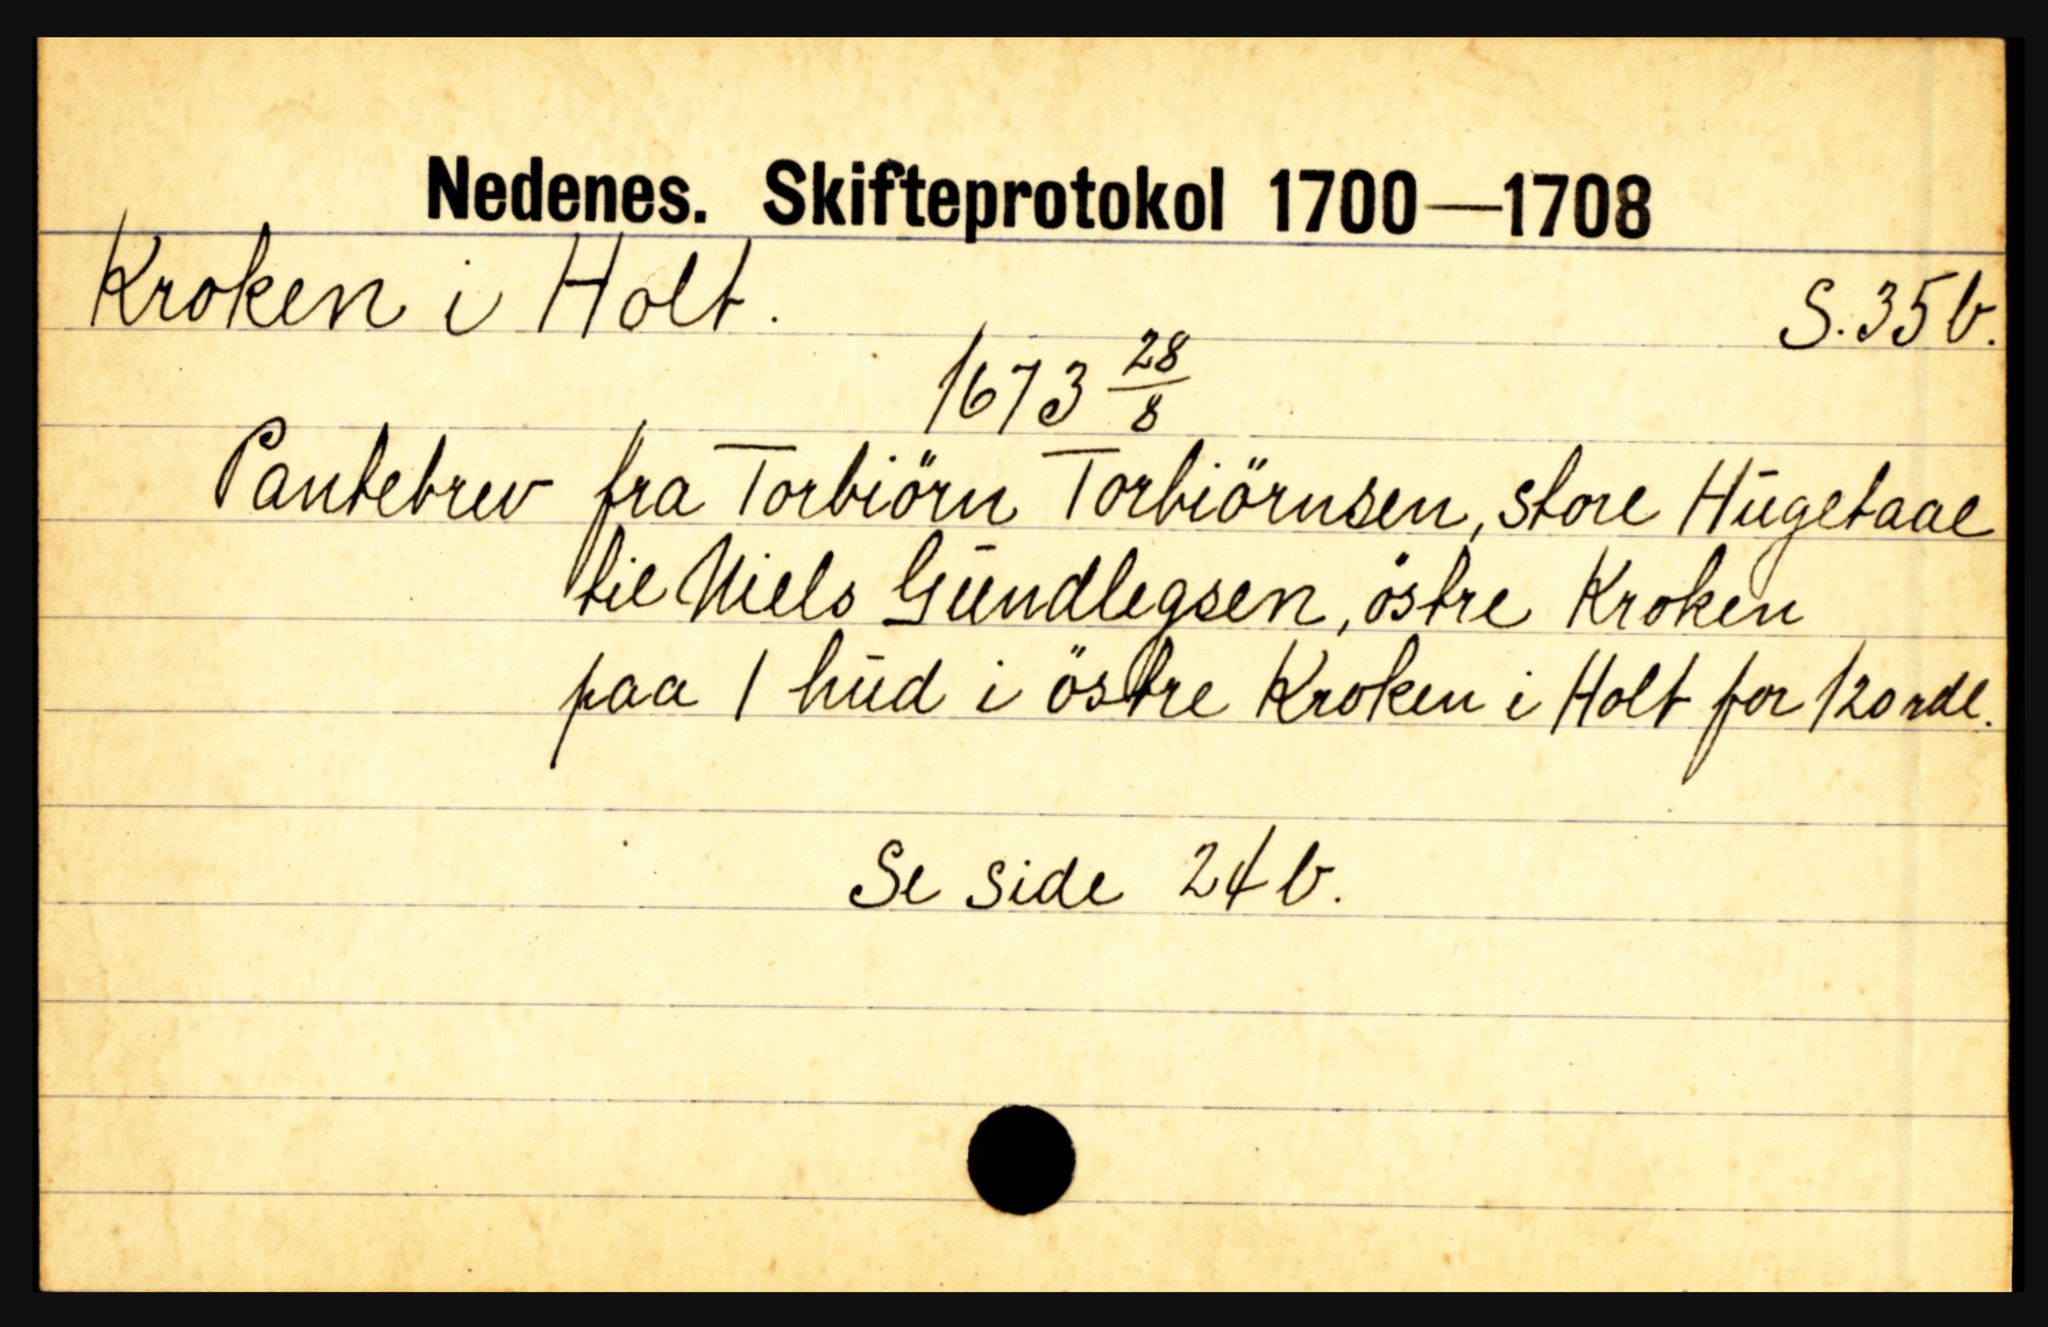 Nedenes. Skifteprotokol 1700—1708
Kroken i Holt. S. 35b.
1673 28/8
Pantebrev fra Torbiörn Torbiörnsen, store Hūgetaae
til Niels Gūndlegsen, östre Kroken
paa 1 hūd i östre Kroken i Holt for 120 rdl.
Se side 24b.